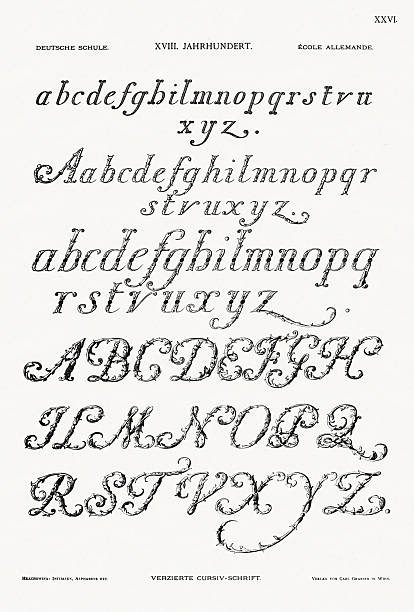 XXVI.
DEUTSCHE SCHULE. XVIII. JAHRHUNDERT. ÉCOLE ALLEMANDE.
abcdefghilmnopqrstvu
xyz.
Aabcdefghilmnopqr
stvuxyz.
abcdefghilmnopq
rstvuxyz.
ABCDEFGH
ILMNOPQ
RSTVXYZ.
HRACHOWINA: INITIALEN, ALPHABETE ETC. VERZIERTE CURSIV-SCHRIFT. VERLAG VON CARL GRAESER IN WIEN.